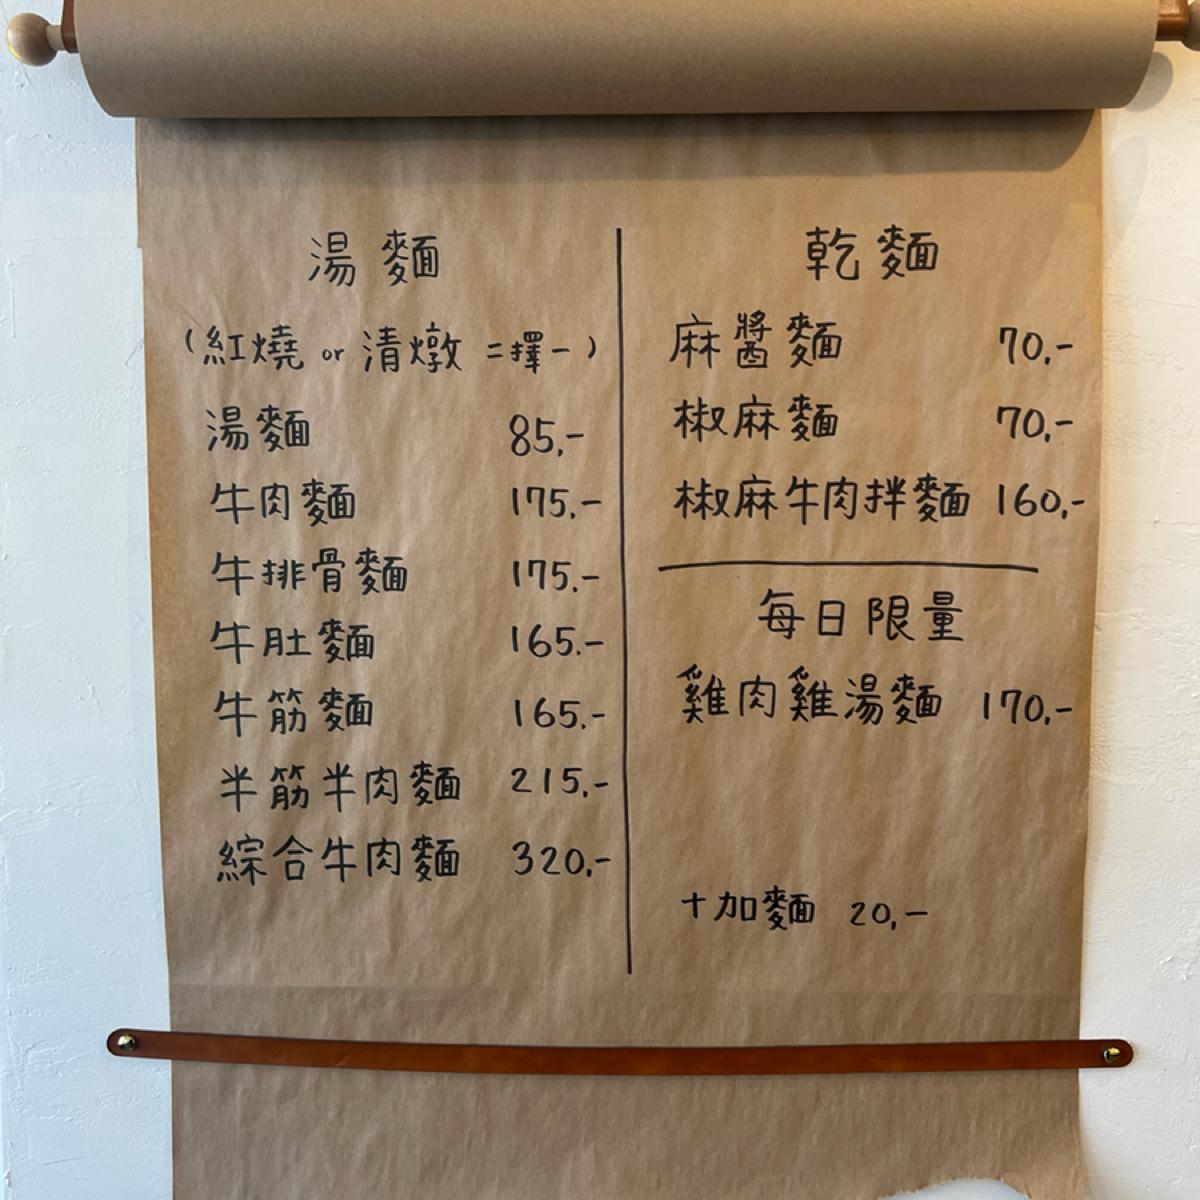 湯麵
（紅燒 or 清燉 二擇一）
湯麵 85.-
牛肉麵 175.-
牛排骨麵 175.-
牛肚麵 165.-
牛筋麵 165.-
半筋半肉麵 215.-
綜合牛肉麵 320.-
乾麵
麻醬麵 70.-
椒麻麵 70.-
椒麻牛肉拌麵 160.-
每日限量
雞肉雞湯麵 170.-
+加麵 20.-